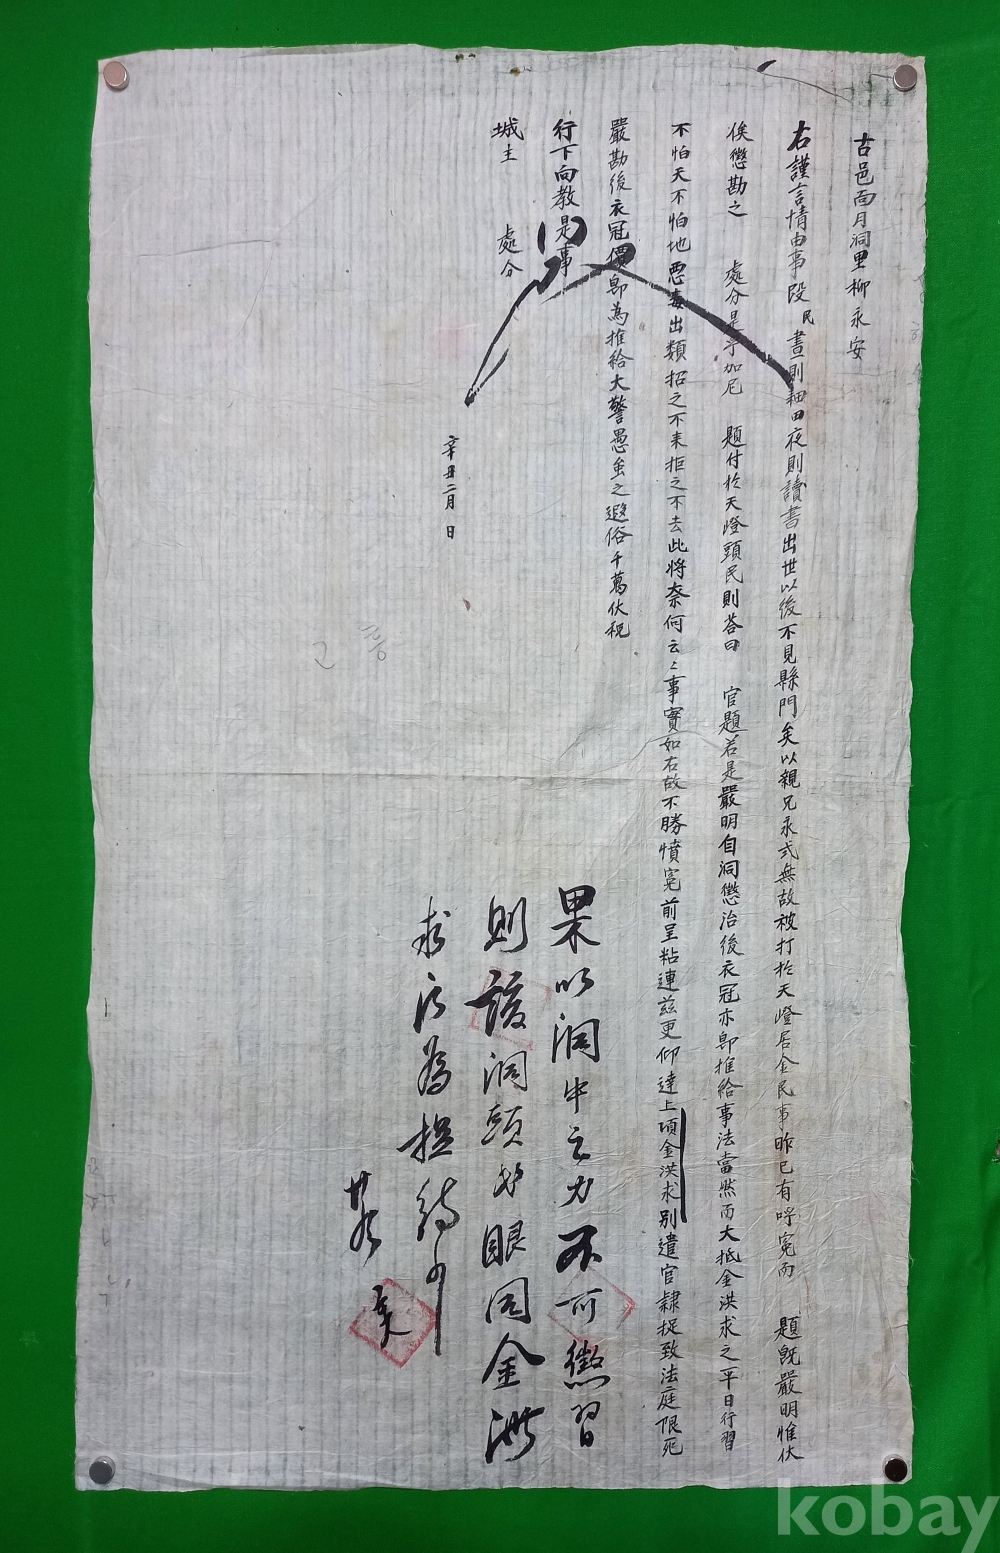 古邑面月洞里柳永安
右謹言情由事段民晝則耕田夜則讀書出世以後不見縣門矣以親兄永弍無故被打於天燈居金民事昨已有呼寃而 題旣嚴明惟伏
俟懲勘之 處分是乎加尼 題付於天燈頭民則答曰 官題若是嚴明自洞懲治後衣冠亦卽推給事法當然而大抵金洪求之平日行習
不怕天不怕地惡毒出類招之不來拒之不去此將奈何云云事實如右故不勝憤寃前呈粘連玆更仰達上項金洪求別遣官隷捉致法庭限死
嚴勘後衣冠價卽爲推給大警愚蚩之遐俗千萬伏祝
行下向教是事
城主 處分
辛丑二月 日
果以洞中之力不可懲習
則該洞頭民眼同金洪
求 爲捉待向事
kobay